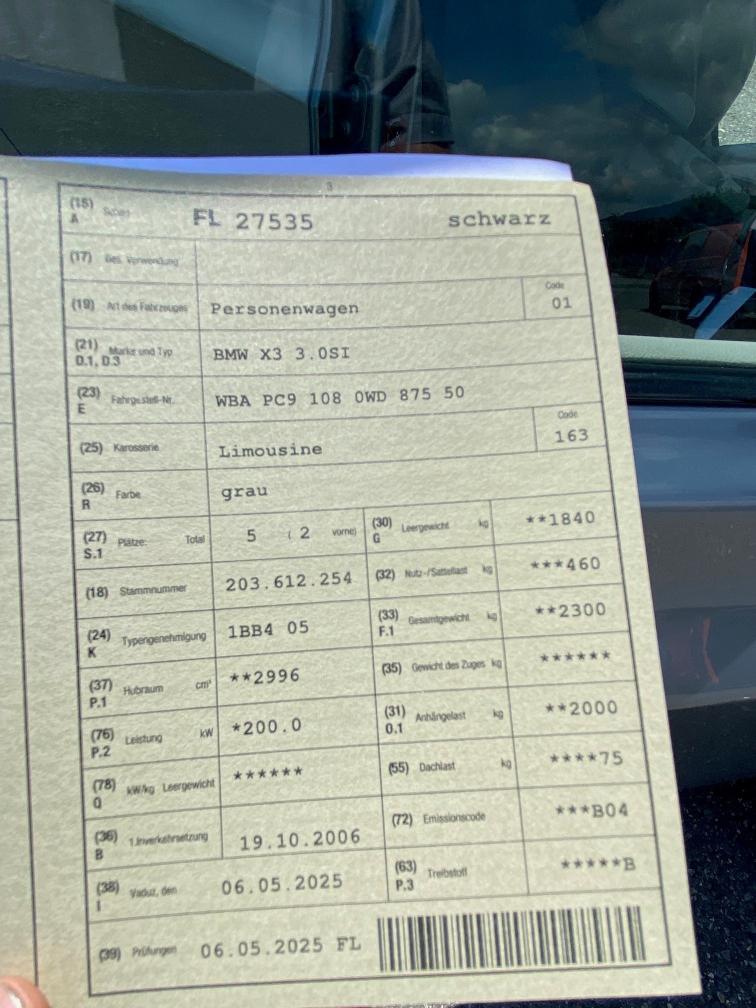 3
(15) A Schild FL 27535 schwarz
(17) Bes. Verwendung
(19) Art des Fahrzeuges Personenwagen Code 01
(21) D.1, D.3 Marke und Typ BMW X3 3.0SI
(23) E Fahrgestell-Nr. WBA PC9 108 0WD 875 50
(25) Karosserie Limousine Code 163
(26) R Farbe grau
(27) S.1 Plätze: Total 5 ( 2 vorne) (30) G Leergewicht kg **1840
(18) Stammnummer 203.612.254 (32) Nutz-/Sattellast kg ***460
(24) K Typengenehmigung 1BB4 05 (33) F.1 Gesamtgewicht kg **2300
(37) P.1 Hubraum cm³ **2996 (35) Gewicht des Zuges kg ******
(76) P.2 Leistung kW *200.0 (31) O.1 Anhängelast kg **2000
(78) Q kW/kg Leergewicht ****** (55) Dachlast kg ****75
(36) B 1.Inverkehrsetzung 19.10.2006 (72) Emissionscode ***B04
(38) I Vaduz, den 06.05.2025 (63) P.3 Treibstoff *****B
(39) Prüfungen 06.05.2025 FL